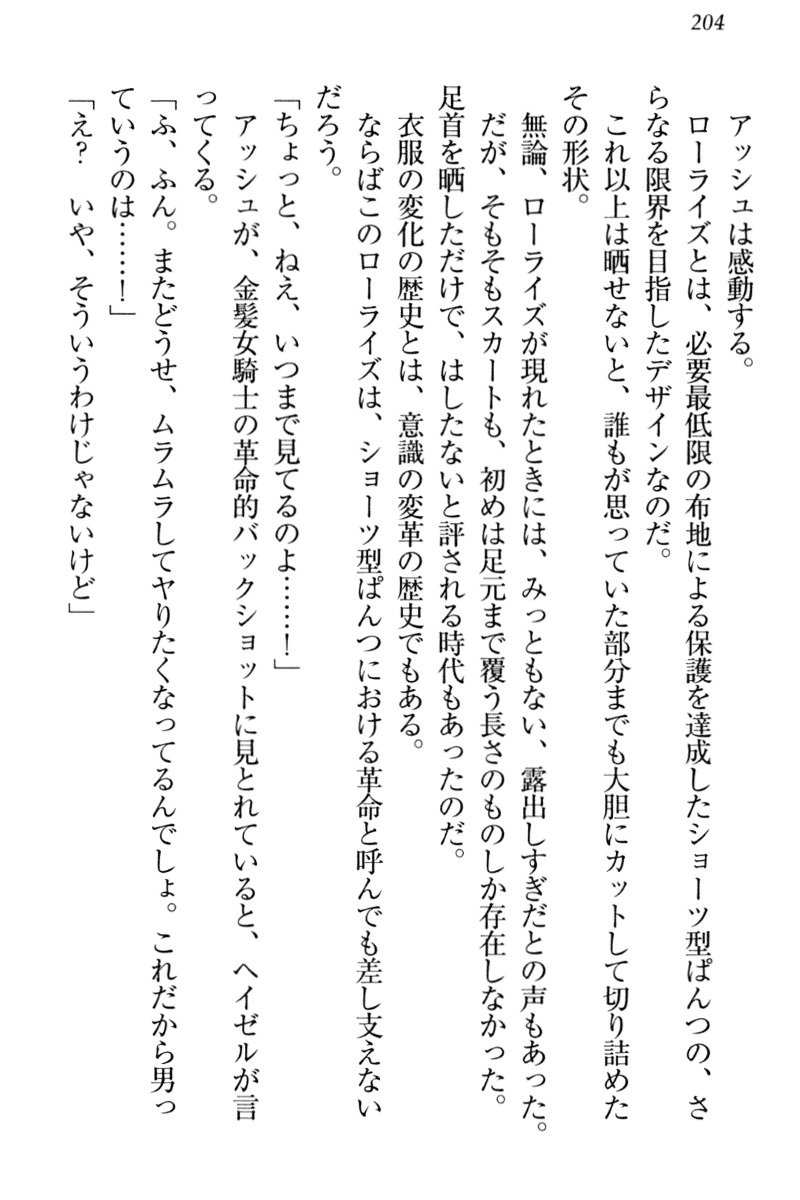 204
アッシュは感動する。
ローライズとは、必要最低限の布地による保護を達成したショーツ型ぱんつの、さ
らなる限界を目指したデザインなのだ。
これ以上は晒せないと、誰もが思っていた部分までも大胆にカットして切り詰めた
その形状。
無論、ローライズが現れたときには、みっともない、露出しすぎだとの声もあった。
だが、そもそもスカートも、初めは足元まで覆う長さのものしか存在しなかった。
足首を晒しただけで、はしたないと評される時代もあったのだ。
衣服の変化の歴史とは、意識の変革の歴史でもある。
ならばこのローライズは、ショーツ型ぱんつにおける革命と呼んでも差し支えない
だろう。
「ちょっと、ねえ、いつまで見てるのよ……！」
アッシュが、金髪女騎士の革命的バックショットに見とれていると、ヘイゼルが言
ってくる。
「ふ、ふん。またどうせ、ムラムラしてヤりたくなってるんでしょ。これだから男っ
ていうのは……！」
「え？　いや、そういうわけじゃないけど」